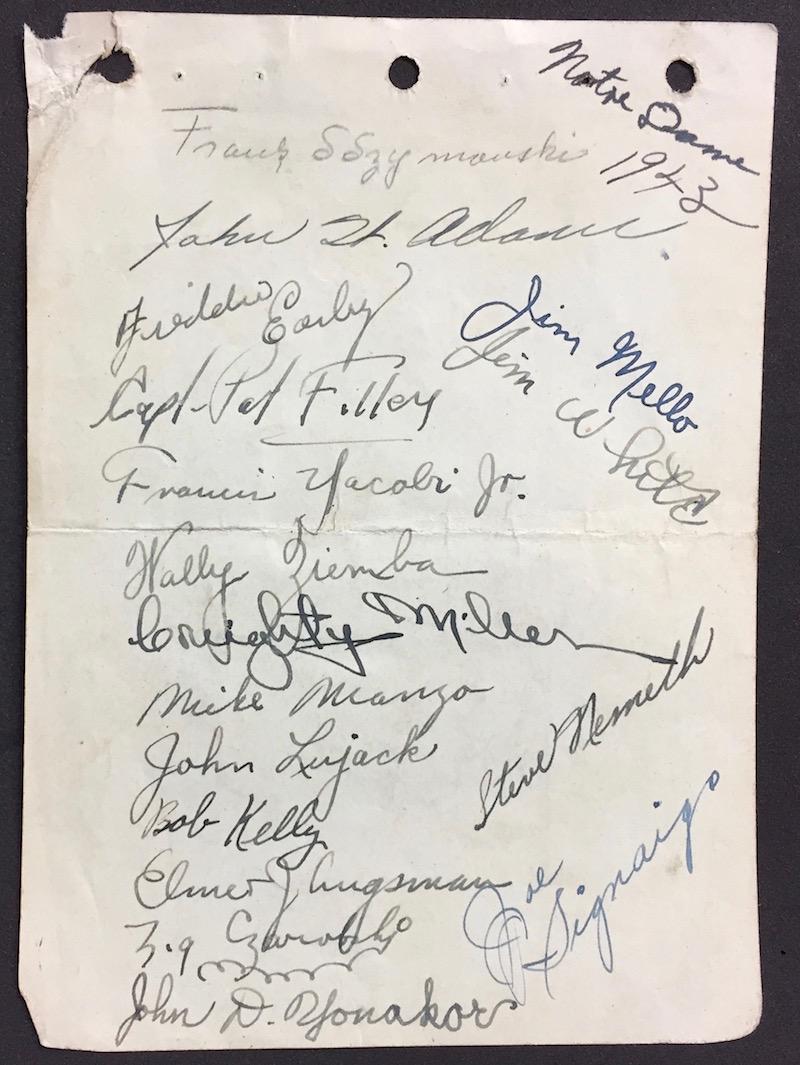 Notre Dame
1943
Frank S Szymanski
John H. Adams
Freddie Earley
Jim Mello
Jim White
Capt. Pat Filley
Francis Yacobi Jr.
Wally Ziemba
Creighty Miller
Mike Manzo
John Lujack
Steve Nemeth
Bob Kelly
Elmer J Angsman
Joe Signaigo
Zig Czarobski
John D. Yonakor